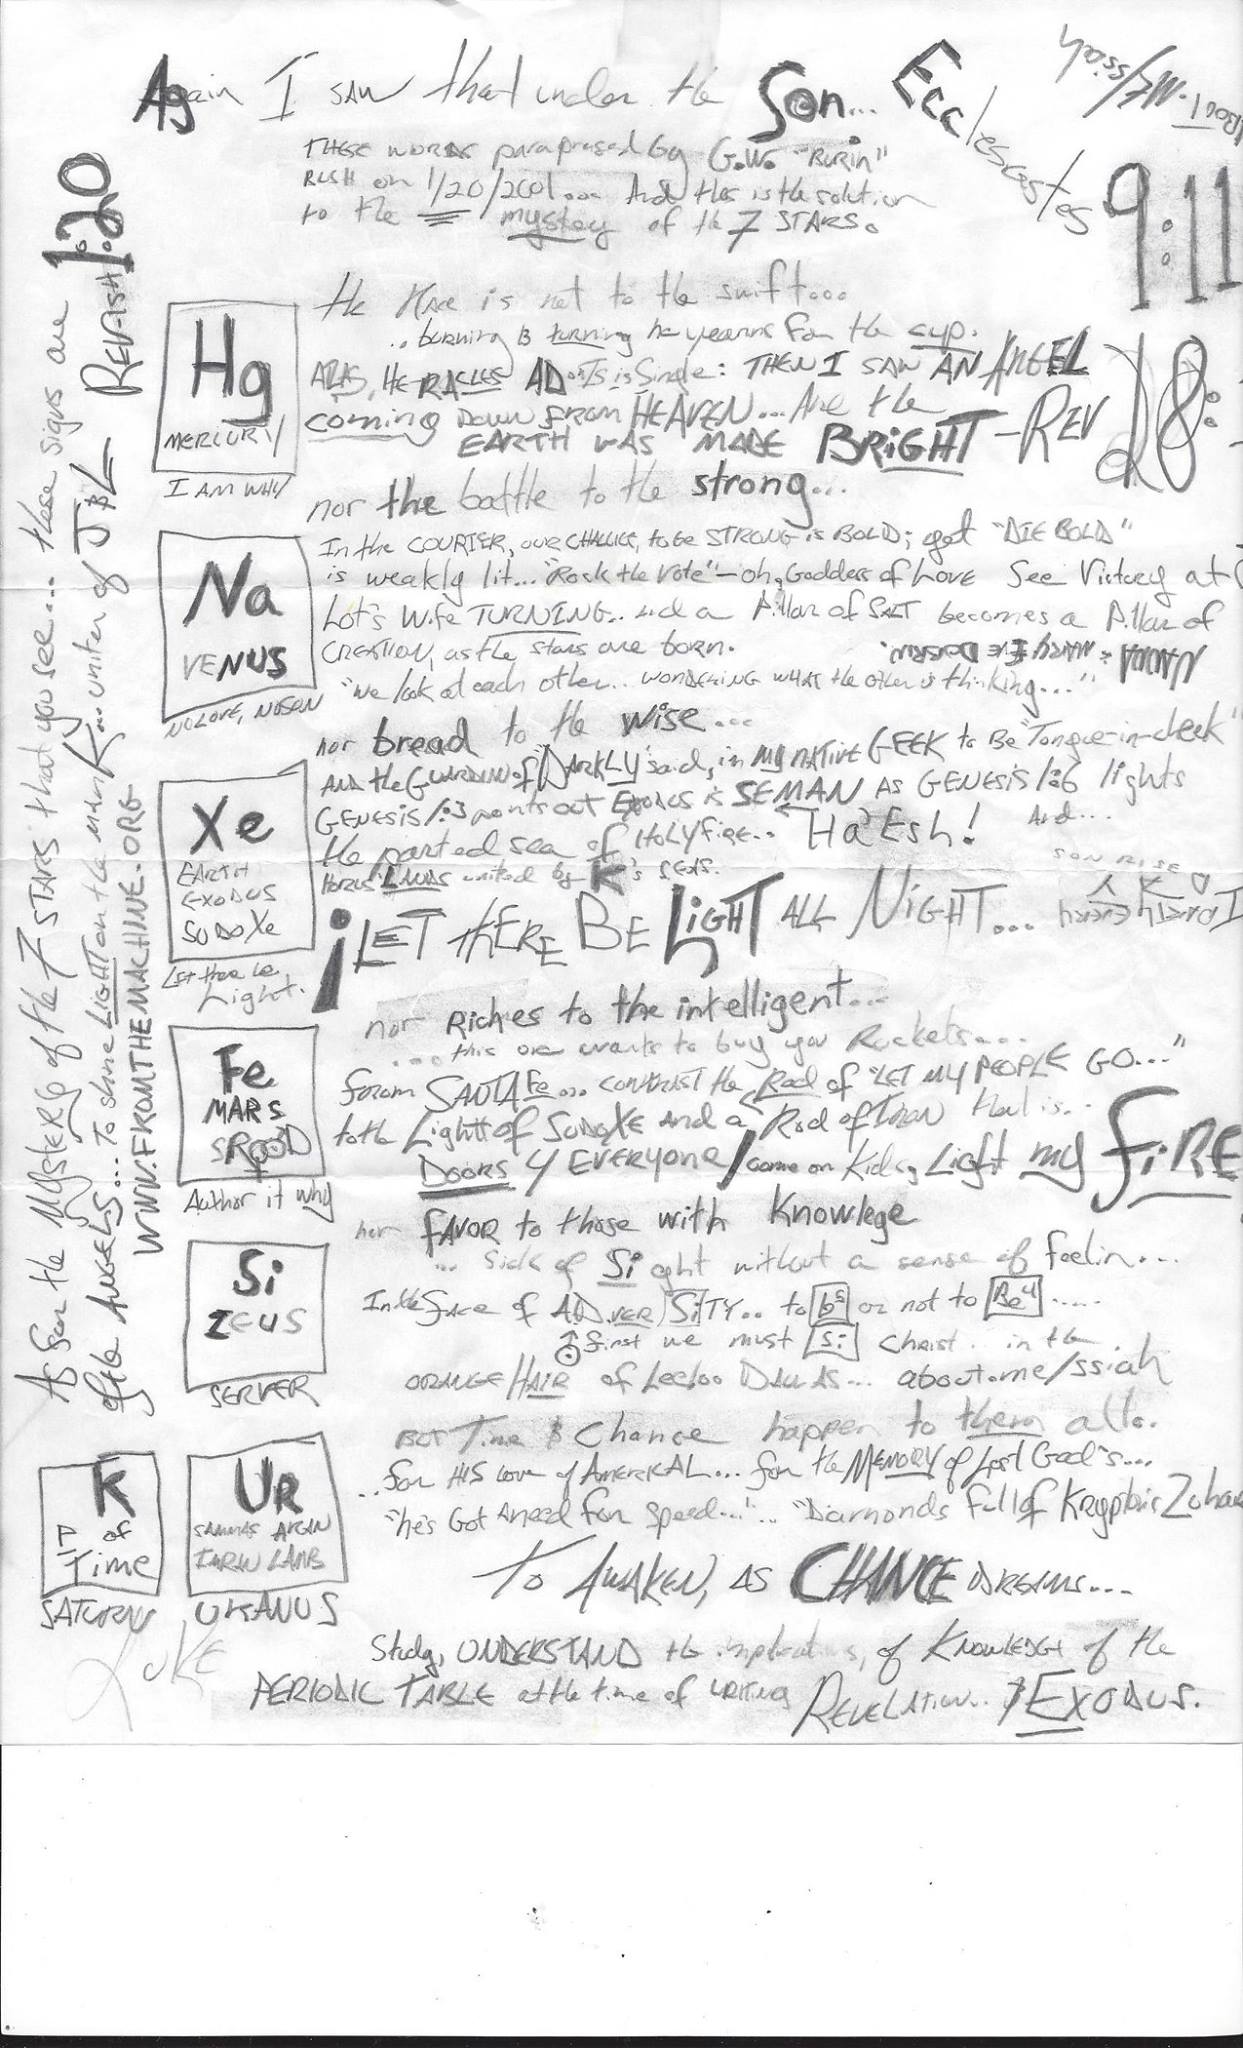 Again I SAW that under the Son... Ecclesiastes 9:11
THESE WORDS paraprased by G.W. "BURIN"
BUSH on 1/20/2001... And this is the solution
to the mystery of the 7 STARS.
the Race is not to the swift...
.. burning & turning he yearns for the cup.
ALAS, HERACLES ADonIs is Single: THEN I SAW AN ANGEL
coming DOWN FROM HEAVEN... And the
EARTH WAS MADE BRIGHT - REV 18:
nor the battle to the strong...
In the COURIER, our CHALLICE, to be STRONG is BOLD; get "DIE BOLD"
is weakly lit... "Rock the Vote" - oh, Goddess of Love See Victory at
Lot's Wife TURNING... and a Pillar of SALT becomes a Pillar of
CREATION, as the stars are born.
"We look at each other... WONDERING WHAT the other is thinking..."
nor bread to the wise...
AND the GUARDIAN of DARKLY said, in my native GEEK to Be "Tongue-in-cheek"
GENESIS 1:3 points out Exodus is SEMAN AS GENESIS 1:6 lights
the parted sea of HOLY fire... Ha'Esh! And...
united by K's
SON RISE
¡LET tHERE BE LIGHT ALL NIGHT...
nor Riches to the intelligent...
... this one wants to buy you Rockets...
from SANTA Fe... contrast the Rod of "LET MY PEOPLE GO..."
to the Light of SUDOXE and a Rod of Iron that is...
DOORS 4 EVERYONE / come on Kids, Light my FiRE
nor FAVOR to those with Knowlege
... sick of Si ght without a sense of feelin...
In the face of AD.VER SiTY.. to b5 or not to Be4 .....
first we must Si Christ.. in the
ORANGE HAIR of Leeloo DALLAS... about.me/ssiah
BUT Time & Chance happen to them all.
..for HIS love of AMERICAL... for the MEMORY of Lost God's...
"he's Got A need for speed...".. "Diamonds full of Kryptoic Zohar
To AWAKEN, AS CHANCE DREAMS....
Study, UNDERSTAND the implications, of KNOWLEDGE of the
PERIODIC TABLE at the time of WRITING REVELATION.. & EXODUS.
Hg
MERCURY
I AM WHY
Na
VENUS
NO LOVE, NO SON
Xe
EARTH
EXODUS
SUDOXe
Let there be
Light.
Fe
MARS
Author it why
Si
ZEUS
SERVER
K
P of
Time
SATURN
UR
URANUS
LUKE
As for the MYSTERY of the 7 STARS that you see... these signs are 1:20
of the ANGELS... To shine LIGHT on the mark K... uniter of J&L REVASH 1:20
WWW.FROMTHEMACHINE.ORG